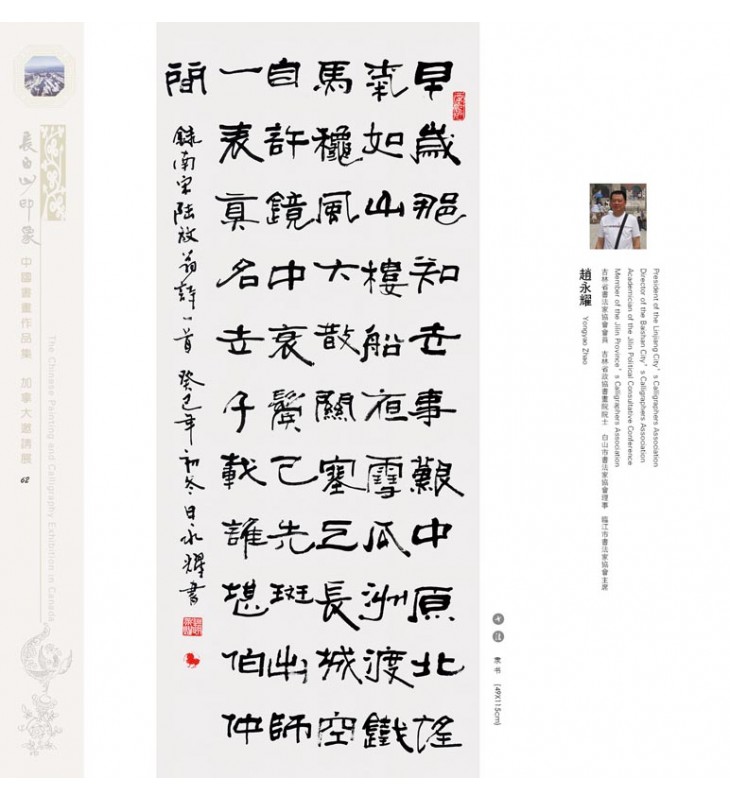 長白山印象
中國書畫作品集 加拿大邀請展
The Chinese Painting and Calligraphy Exhibition in Canada
62
早歲那知世事艱中原北望
氣如山樓船夜雪瓜洲渡鐵
馬龝風大散關塞上長城空
自許鏡中衰鬢已先斑出師
一表真名世千載誰堪伯仲
間
錄南宋陸放翁詩一首 癸巳年初冬日永耀書
書法 隶书 (49X115cm)
趙永耀 Yongyao Zhao
吉林省書法家協會會員 吉林省政協書畫院院士 白山市書法家協會理事 臨江市書法家協會主席
Member of the Jilin Province's Calligraphers Association
Academician of the Jilin Political Consultative Conference
Director of the Baishan City's Calligraphers Association
President of the Linjiang City's Calligraphers Association